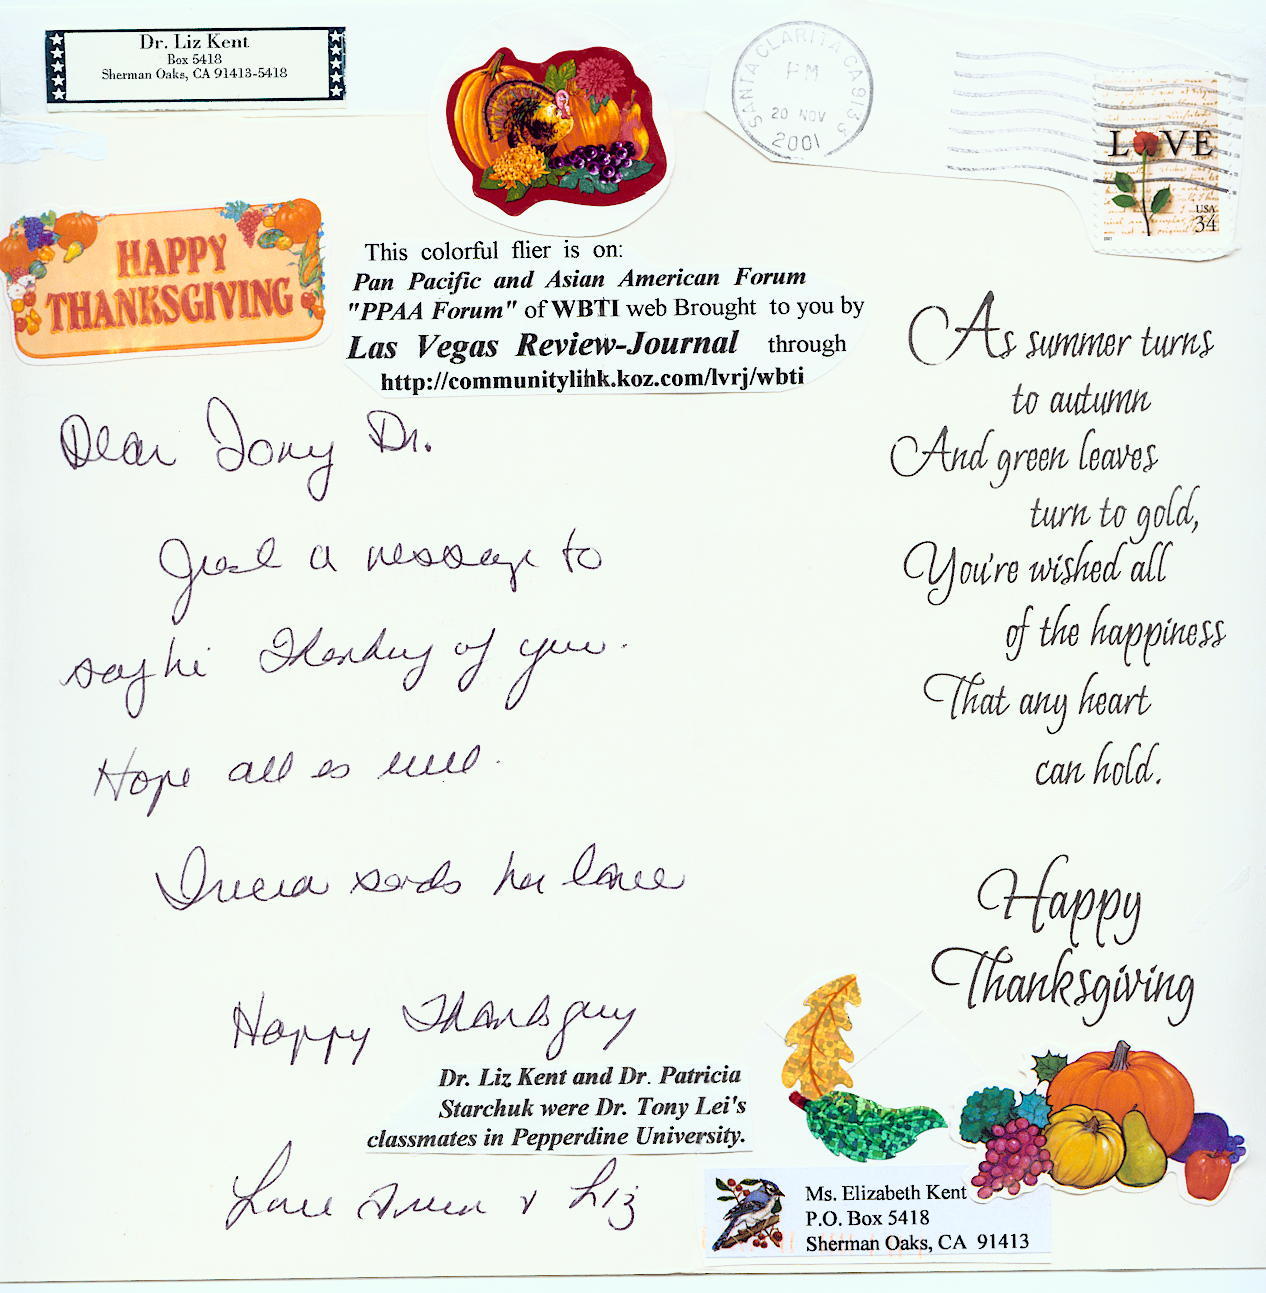 Dr. Liz Kent
Box 5418
Sherman Oaks, CA 91413-5418
SANTA CLARITA CA 9133
PM
20 NOV
2001
LOVE
USA
34
HAPPY
THANKSGIVING
This colorful flier is on:
Pan Pacific and Asian American Forum
"PPAA Forum" of WBTI web Brought to you by
Las Vegas Review-Journal through
http://communitylink.koz.com/lvrj/wbti
Dear Tony Dr.
Just a message to
say hi Thinking of you.
Hope all is well.
sends her love
Happy Thanksgiving
Dr. Liz Kent and Dr. Patricia
Starchuk were Dr. Tony Lei's
classmates in Pepperdine University.
Love & Liz
As summer turns
to autumn
And green leaves
turn to gold,
You're wished all
of the happiness
That any heart
can hold.
Happy
Thanksgiving
Ms. Elizabeth Kent
P.O. Box 5418
Sherman Oaks, CA 91413